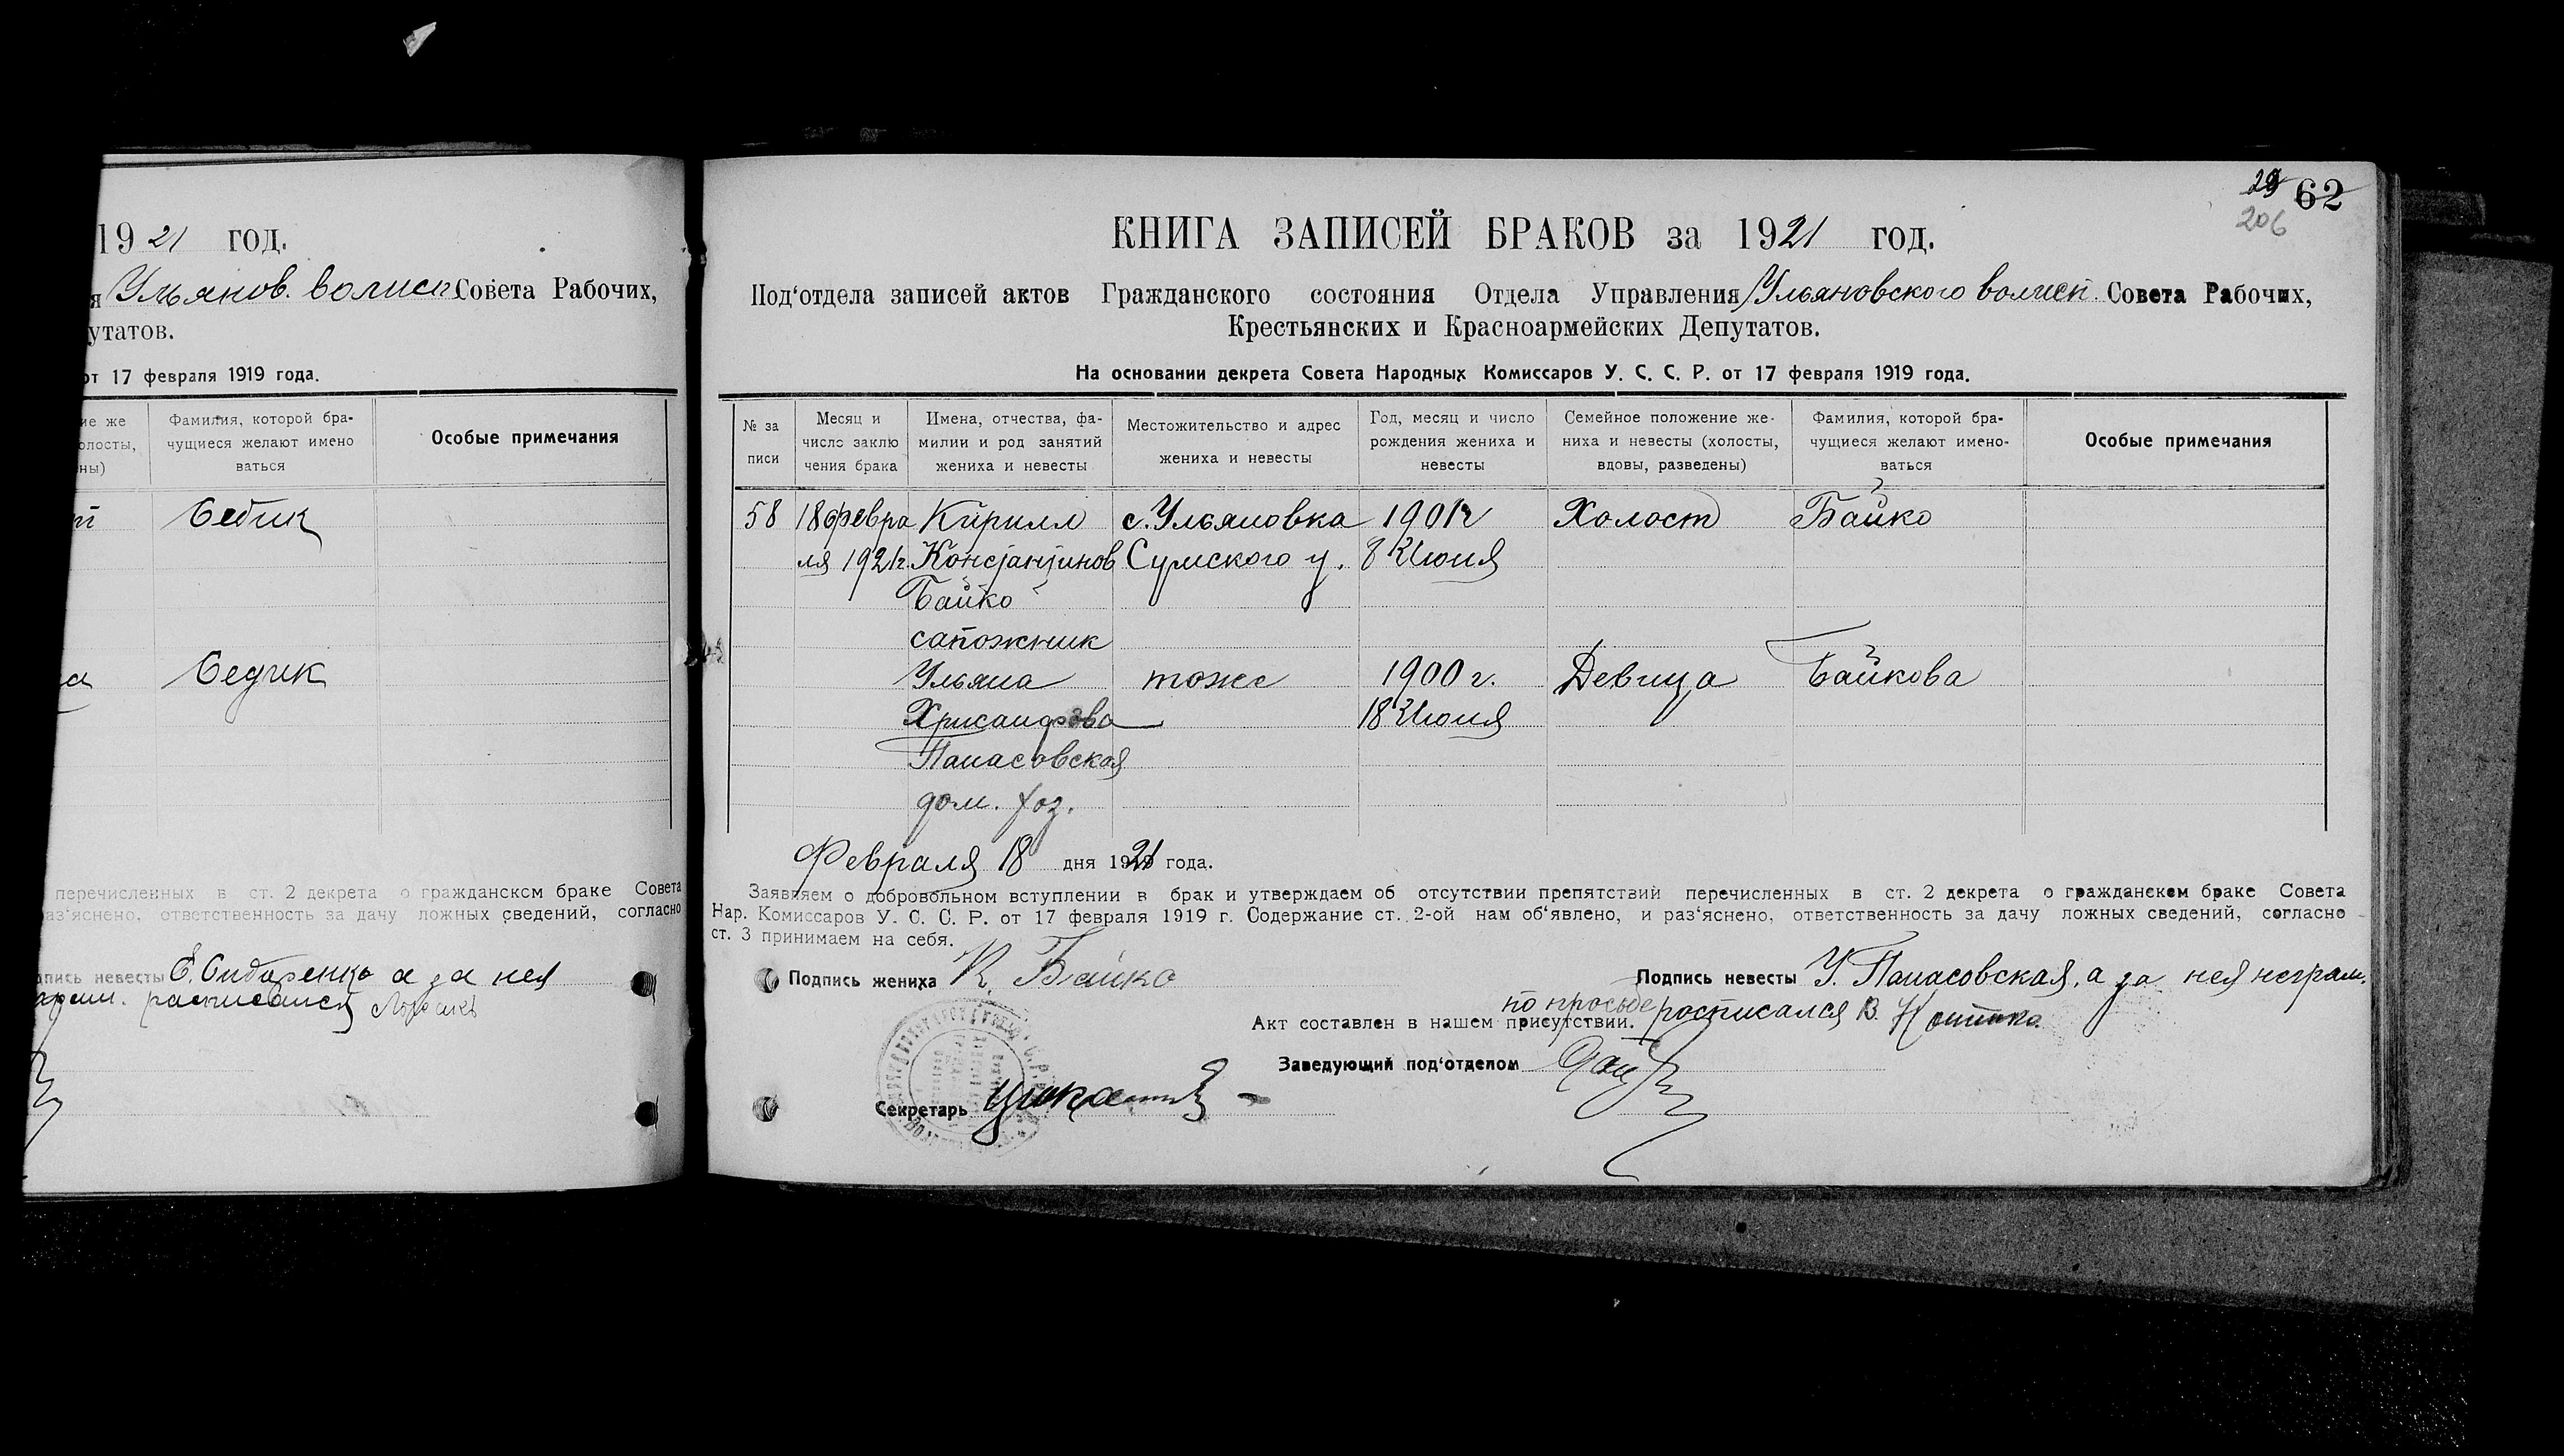 1921 год.
я Ульянов. волисп. Совета Рабочих,
утатов.
от 17 февраля 1919 года.
ие же
олосты,
ны)
Фамилия, которой бра-
чущиеся желают имено
ваться
Особые примечания
Седик
а Седик
перечисленных в ст. 2 декрета о гражданском браке Совета
аз'яснено, ответственность за дачу ложных сведений, согласно
дпись невесты Е. Сидоренко а за нея
расписался
29 62
206
КНИГА ЗАПИСЕЙ БРАКОВ за 1921 год.
Под'отдела записей актов Гражданского состояния Отдела Управления Ульяновского волисп. Совета Рабочих,
Крестьянских и Красноармейских Депутатов.
На основании декрета Совета Народных Комиссаров У. С. С. Р. от 17 февраля 1919 года.
№ за
писи
Месяц и
число заклю
чения брака
Имена, отчества, фа-
милии и род занятий
жениха и невесты
Местожительство и адрес
жениха и невесты
Год, месяц и число
рождения жениха и
невесты
Семейное положение же-
ниха и невесты (холосты,
вдовы, разведены)
Фамилия, которой бра-
чущиеся желают имено-
ваться
Особые примечания
58 18 февра Кирилл с. Ульяновка 1901 г Холост Байко
ля 1921 г. Константинов Сумского у. 8 Июня
Байко
сапожник
Ульяна тоже 1900 г. Девица Байкова
Хрисанфова 18 Июня
Панасовская
дом. хоз.
Февраля 18 дня 1921 года.
Заявляем о добровольном вступлении в брак и утверждаем об отсутствии препятствий перечисленных в ст. 2 декрета о гражданском браке Совета
Нар. Комиссаров У. С. С. Р. от 17 февраля 1919 г. Содержание ст. 2-ой нам об'явлено, и раз'яснено, ответственность за дачу ложных сведений, согласно
ст. 3 принимаем на себя.
Подпись жениха К. Байко
Подпись невесты У. Панасовская, а за нея неграм.
по просьбе росписался В.
Акт составлен в нашем присутствии.
Заведующий под'отделом
Секретарь